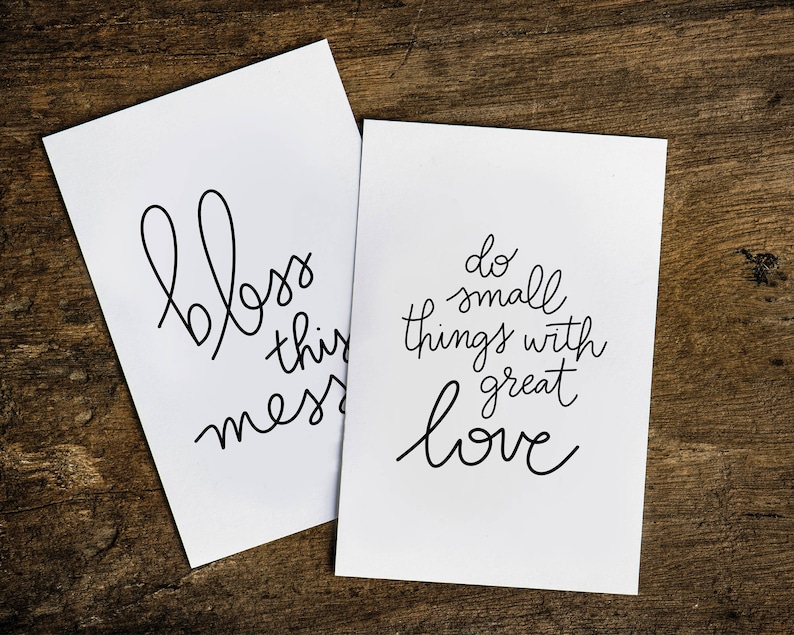 bless
this
mess
do
small
things with
great
love